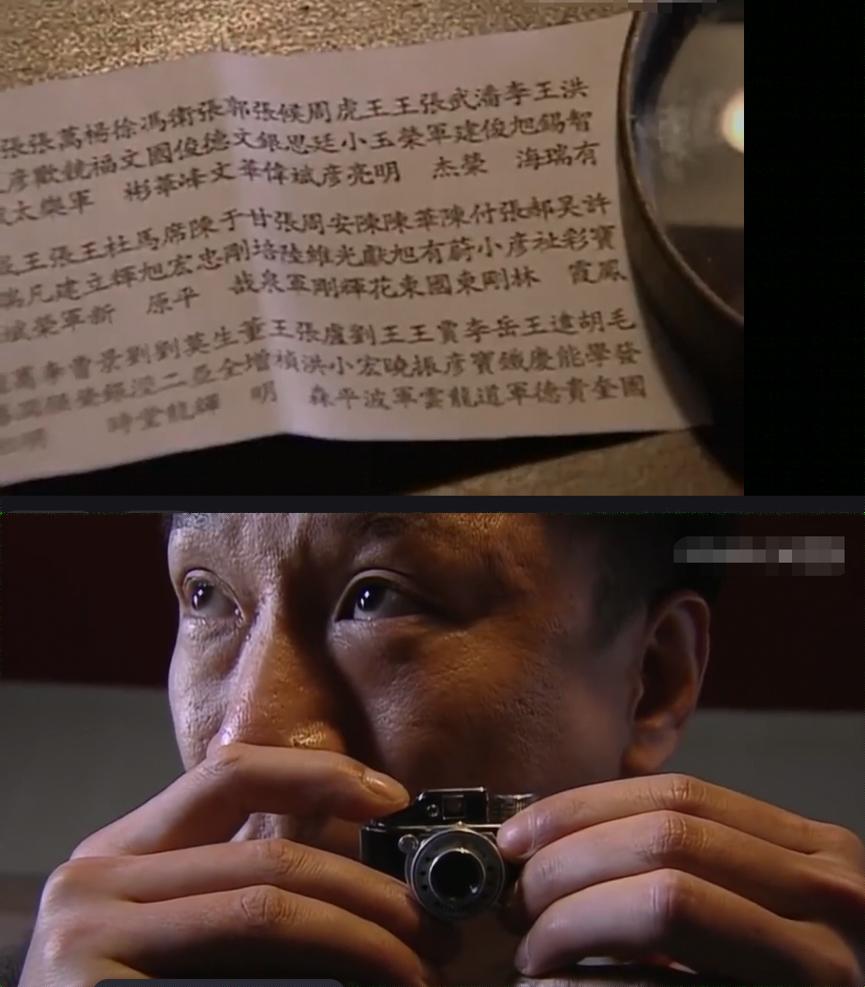 洪智有
王錫瑞
李旭海
潘俊
武建榮
張軍杰
王榮
王玉明
虎小亮
周廷彦
候思斌
張銀偉
郭文華
張德文
衛俊峰
馮國華
徐文彬
楊福
萬競軍
張歡樂
張彦太
許寶鳳
吳彩霞
郝祉
張彦林
付小剛
陳蔚東
華有國
陳旭東
陳獻花
安光輝
周維剛
張陸軍
甘培泉
于剛哉
陳忠
席宏平
馬旭原
杜輝
王立新
張建軍
王凡榮
毛發國
胡學奎
逯能貴
王慶德
岳鐵軍
李寶道
賈彦龍
王振雲
王曉軍
劉宏波
盧小平
張洪森
王禎
董增明
生全
莫丕輝
劉二龍